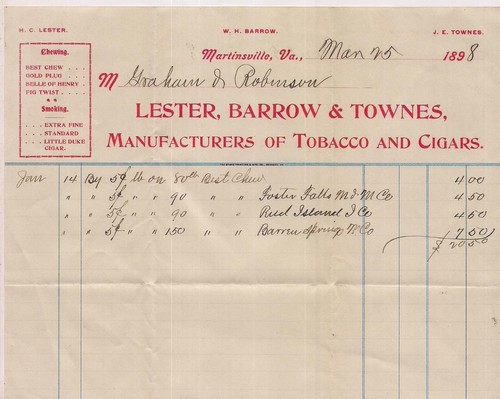 H. C. LESTER. W. H. BARROW. J. E. TOWNES.
Martinsville, Va., Mar 25 1898
Chewing.
BEST CHEW . . .
GOLD PLUG . . .
BELLE OF HENRY .
FIG TWIST . . .
Smoking.
. . . EXTRA FINE
. . . STANDARD
. . . LITTLE DUKE
CIGAR.
M Graham & Robinson
LESTER, BARROW & TOWNES,
MANUFACTURERS OF TOBACCO AND CIGARS.
Jan 14 By 5¢ lb on 80 lbs Best Chew 4 00
" " 5¢ " " 90 " " Foster Falls M & M Co 4 50
" " 5¢ " " 90 " " Reed Island I Co 4 50
" " 5¢ " " 150 " " Barren Springs M Co 7 50
$ 20 50